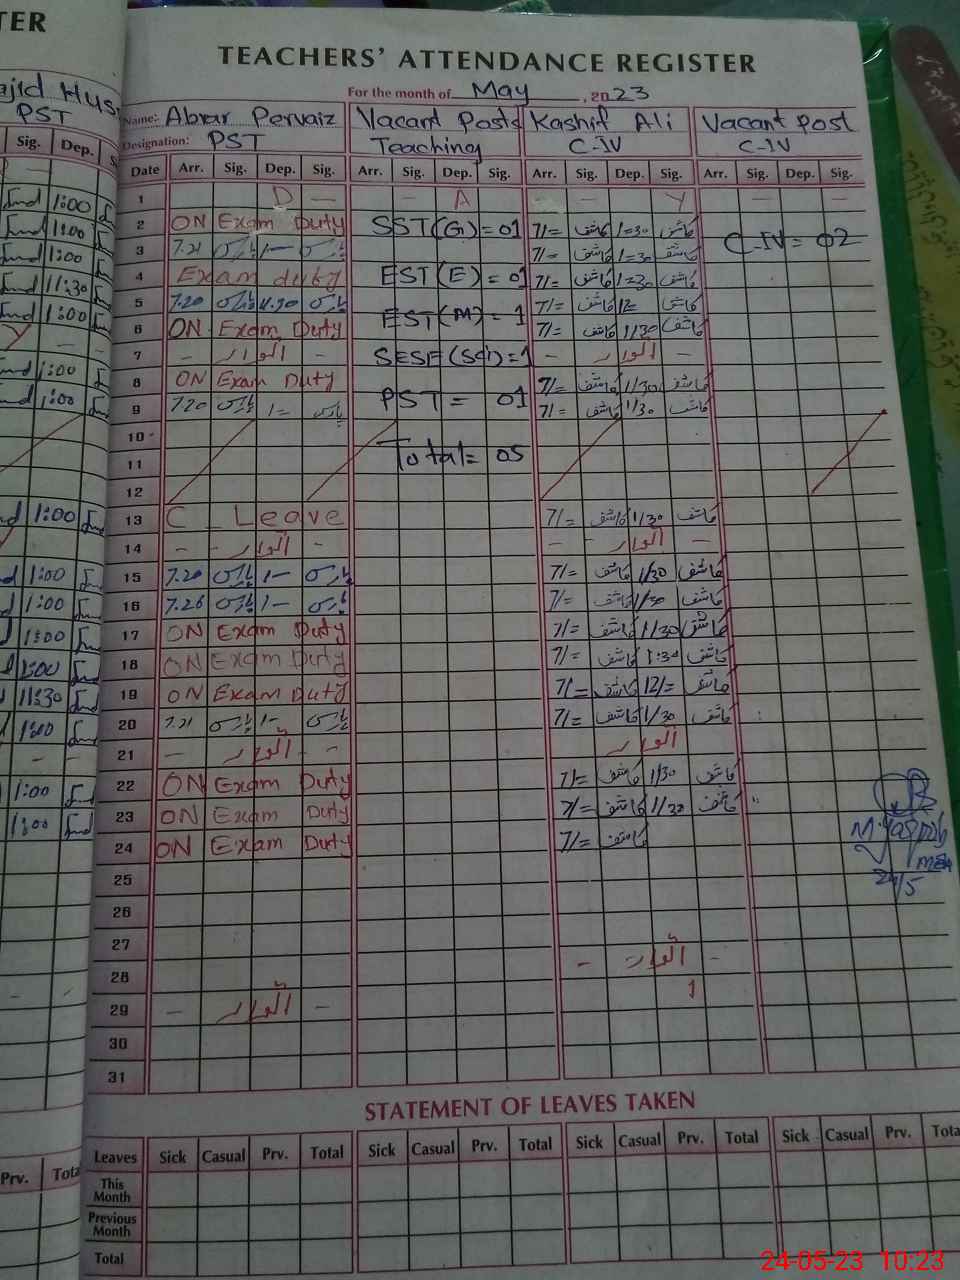 TER
TEACHERS' ATTENDANCE REGISTER
For the month of May, 2023
PST
Name: Abrar Pervaiz Vacant Posts Kashif Ali Vacant post
Designation: PST Teaching C-IV C-IV
Sig. Dep. Date Arr. Sig. Dep. Sig. Arr. Sig. Dep. Sig. Arr. Sig. Dep. Sig. Arr. Sig. Dep. Sig.
1 D — — A — — Y — —
1:00 2 ON Exam Duty SST(G) = 01 7/= کاشف 1=30 کاشف
1:00 3 7.21 پارس 1— پارس 7/= کاشف 1=30 کاشف C-IV = 02
1:00 4 Exam duty EST(E) = 01 7/= کاشف 1=30 کاشف
11:30 5 7.20 پارس 11.30 پارس 7/= کاشف 12= کاشف
1:00 6 ON Exam Duty EST(M) = 1 7/= کاشف 1/30 کاشف
7 - اتوار - SESE(Sci) = 1 - اتوار -
1:00 8 ON Exam Duty 7/= کاشف 1/30 کاشف
1:00 9 7.20 پارس 1= پارس PST = 01 7/= کاشف 1/30 کاشف
10
11 Total = 05
12
1:00 13 C_Leave 7/= کاشف 1/30 کاشف
14 - - اتوار - - - اتوار -
1:00 15 7.20 پارس 1— پارس 7/= کاشف 1/30 کاشف
1:00 16 7.26 پارس 1— پارس 7/= کاشف 1/30 کاشف
1:00 17 ON Exam Duty 7/= کاشف 1/30 کاشف
1:00 18 ON Exam Duty 7/= کاشف 1:30 کاشف
11:30 19 ON Exam Duty 7/= کاشف 12/= کاشف
1:00 20 7.21 پارس 1— پارس 7/= کاشف 1/30 کاشف
21 - اتوار - اتوار
1:00 22 ON Exam Duty 7/= کاشف 1/30 کاشف
1:00 23 ON Exam Duty 7/= کاشف 1/30 کاشف "
24 ON Exam Duty 7/= کاشف
MEA
24/5
25
26
27
28 - اتوار -
29 - اتوار -
30
31
STATEMENT OF LEAVES TAKEN
Prv. Leaves Sick Casual Prv. Total Sick Casual Prv. Total Sick Casual Prv. Total Sick Casual Prv.
This Month
Previous Month
Total
24-05-23 10:23